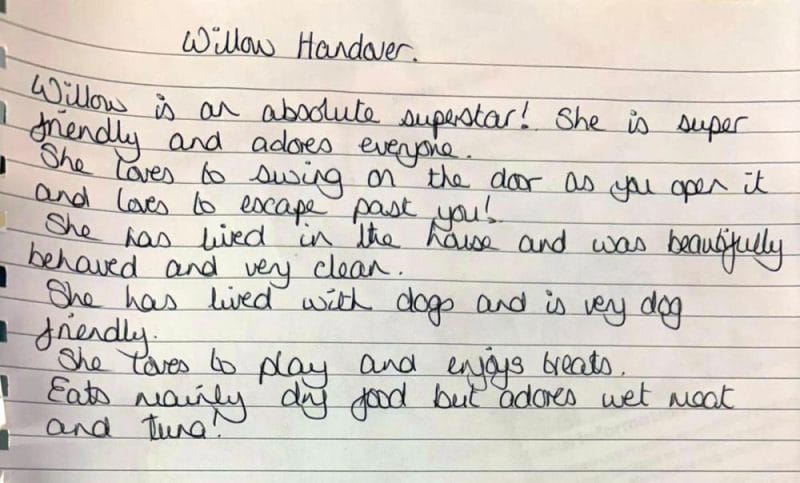 Willow Handover.
Willow is an absolute superstar! She is super
friendly and adores everyone.
She loves to swing on the door as you open it
and loves to escape past you!
She has lived in the house and was beautifully
behaved and very clean.
She has lived with dogs and is very dog
friendly.
She loves to play and enjoys treats.
Eats mainly dry food but adores wet meat
and tuna!